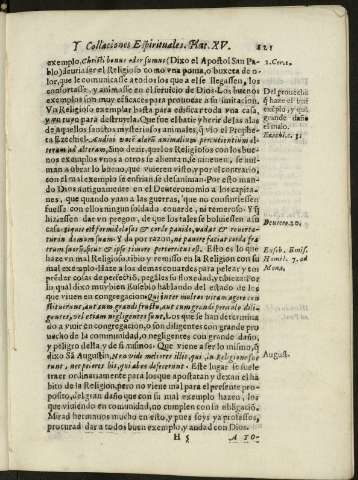 Y Collaciones Espirituales. Pat. XV. 121
exemplo. Christi bonus odor sumus (Dixo el Apostol San Pa-
blo) deuria ser el Religioso como vna poma, o buxeta de o-
lor, que le comunicasse a todos los que a el se llegassen, los
confortasse, y animasse en el seruicio de Dios. Los buenos
exemplos son muy eficaces para prouocar a su imitacion.
Vn Religioso exemplar basta para edificar toda vna casa,
y vn tuyo para destruyrla. Que fue el batir, y herir de las alas
de aquellos santos mysteriosos animales, q̃ vio el Propheta
Ezechiel. Audiui vocē alarū animalium percutientium al-
teram ad alteram, Sino dezir, que los Religiosos con los bue-
nos exemplos vnos a otros se alientan, se mueuen, se ani-
man a obrar lo bueno, que vieren visto, y por el contrario,
con el mal exemplo se enfrian, se desaniman. Por esto man-
do Dios antiguamente en el Deuteronomio a los capita-
nes, que quando yuan a las guerras, que no consintiessen
fuesse con ellos ningun soldado couarde, ni temeroso. Y si
hiziessen dar vn pregon, de que los tales se boluiessen a su
casa.
y da por razon, ne pauere faciat corda fra-
trum suorū, Esto es lo que
haze vn mal Religioso, tibio y remisso en la Religion con su
mal exemplo. Haze a los demas couardes para pelear y em-
prēder cosas de perfeciō, pegales su floxedad, y tibieza. Por
lo qual dixo muy bien Eusebio hablando del estado de los
que viuen en congregacion.
Los que se han determina-
do a viuir en congregacion, o son diligentes con grande pro
uecho de la comunidad, o negligentes con grande daño,
y peligro della y de si mismos. Que viene a ser lo mismo, q̃
dixo Sā Augustin, Non vide meliores illis, qui in Religione sue
runt, Este lugar se suele
traer ordinariamente para los que apostatan y dexan el ha
bito de la Religion, pero no viene mal para el presente pro-
posito, del gran daño que con su mal exemplo hazen, los
que viuiendo en comunidad, no cumplen su obligaciō.
Mirad hermanos mucho en esto, y pues soys ya professos,
procurad dar a todos buen exemplo, y andad con Dios.
H 5 A TO-
2. Cor. 2.
Del prouecho
q̃ haze el buē
exēplo, y que
grande daño
el malo.
Ezechi. c. 3.
Deutero. 20.
Euseb. Emiss.
Homil. 7. ad
Mona.
August.